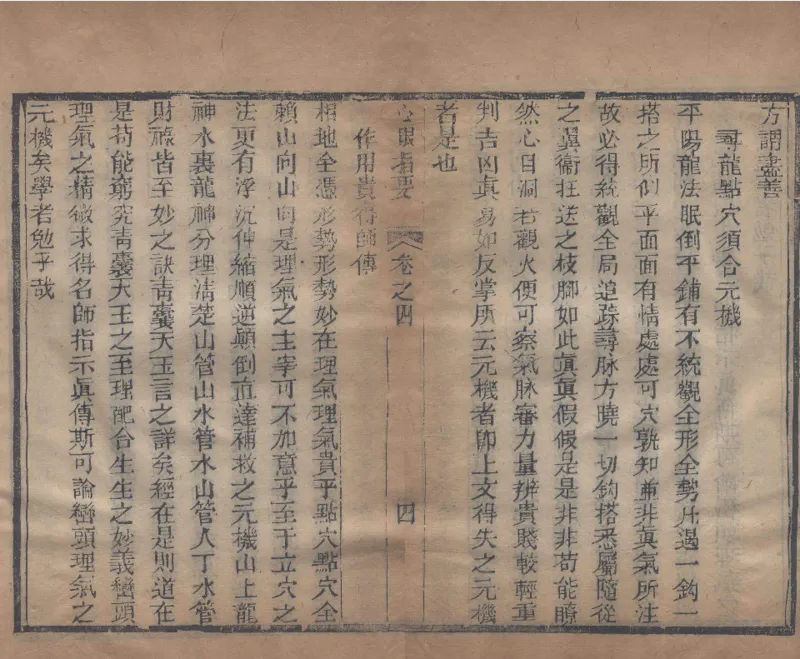 方謂盡善
尋龍點穴須合元機
平陽龍法眠倒平鋪有不統觀全形全勢凡遇一鈎一
搭之所似乎面面有情處處可穴孰知並非眞氣所注
故必得統觀全局追踪尋脉方曉一切鈎搭悉屬隨從
之翼衞枉送之枝脚如此眞眞假假是是非非苟能瞭
然心目洞若觀火便可察氣脉審力量辨貴賤較輕重
判吉凶眞易如反掌所云元機者卽上文得失之元機
者是也
心眼指要 卷之四 四
作用貴得師傳
相地全憑形勢形勢妙在理氣理氣貴乎點穴點穴全
賴山向山向是理氣之主宰可不加意乎至于立穴之
法更有浮沉伸縮順逆顚倒直達補救之元機山上龍
神水裏龍神分理淸楚山管山水管水山管人丁水管
財祿皆至妙之訣靑囊天玉言之詳矣經在是則道在
是苟能窮究靑囊天玉之至理配合生生之妙義巒頭
理氣之精微求得名師指示眞傳斯可論巒頭理氣之
元機矣學者勉乎哉